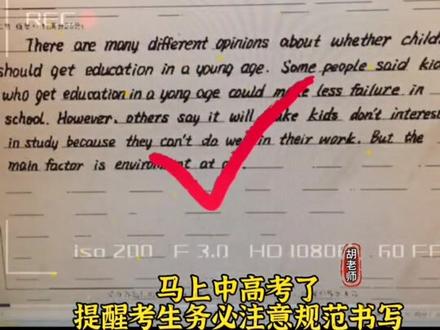 REC
There are many different opinions about whether child
should get education in a young age. Some people said kid
who get education in a yong age could make less failure in
school. However, others say it will make kids don't interes
in study because they can't do well in their work. But the
main factor is environment at
iso 200 F 3.0 HD 60
胡老师
马上中高考了
提醒考生务必注意规范书写